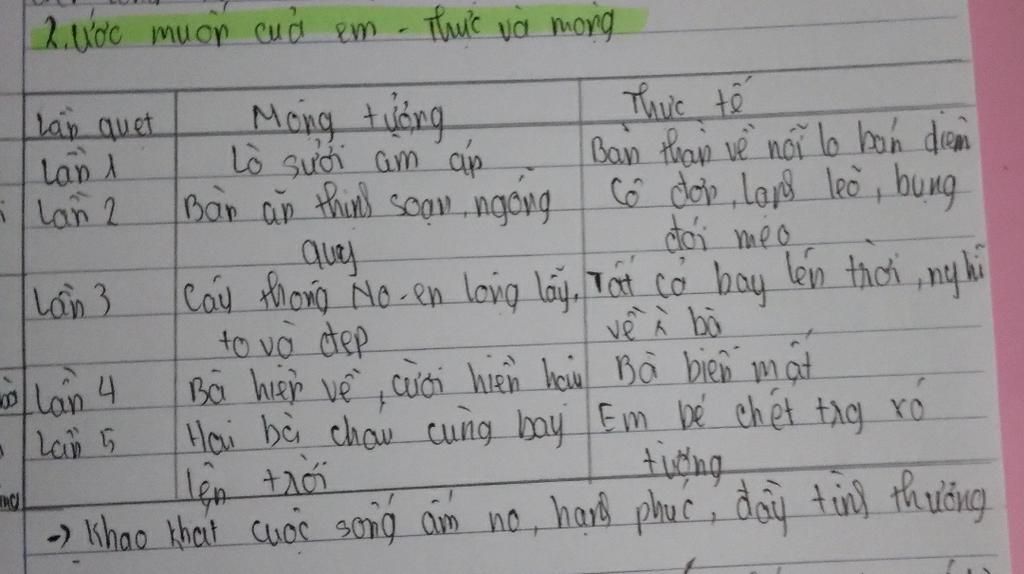 2. Ước muốn của em - Thực và mộng
Lần quẹt Mộng tưởng Thực tế
Lần 1 Lò sưởi ấm áp Bần thần về nỗi lo bán diêm
Lần 2 Bàn ăn thịnh soạn, ngỗng quay Cô đơn, lạnh lẽo, bụng đói meo
Lần 3 Cây thông No-en lộng lẫy, to và đẹp Tất cả bay lên trời, nghĩ về bà
Lần 4 Bà hiện về, cười hiền hậu Bà biến mất
Lần 5 Hai bà cháu cùng bay lên trời Em bé chết trg xó tường
-> Khao khát cuộc sống ấm no, hạnh phúc, đầy tình thương